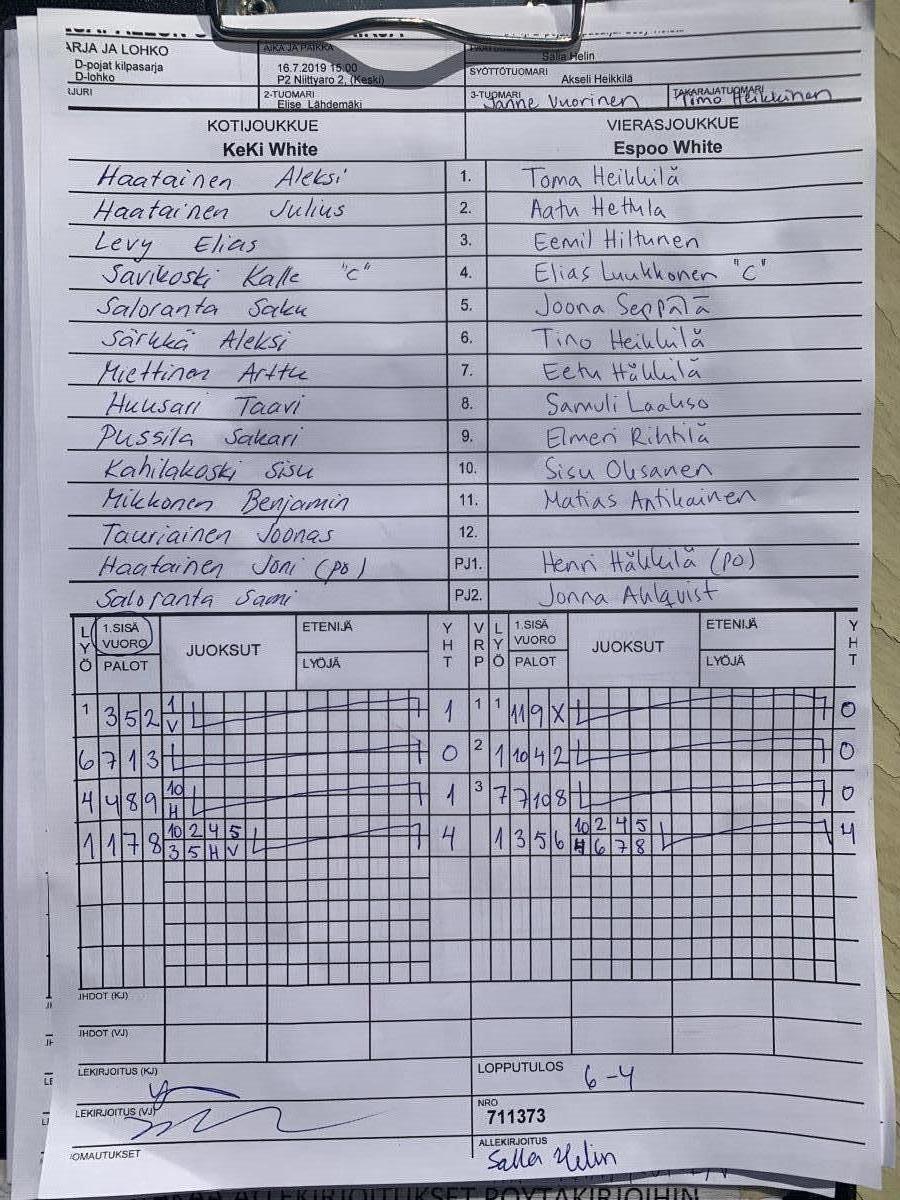 ARJA JA LOHKO
D-pojat kilpasarja
D-lohko
AIKA JA PAIKKA
16.7.2019 15:00
P2 Niittyaro 2, (Keski)
Salla Helin
SYÖTTÖTUOMARI
Akseli Heikkilä
2-TUOMARI
Elise Lähdemäki
3-TUOMARI
Janne Vuorinen
TAKARAJATUOMARI
Timo Heikkinen
KOTIJOUKKUE VIERASJOUKKUE
KeKi White Espoo White
Haatainen Aleksi 1. Toma Heikkilä
Haatainen Julius 2. Aatu Hettula
Levy Elias 3. Eemil Hiltunen
Savikoski Kalle "C" 4. Elias Luukkonen "C"
Saloranta Saku 5. Joona Seppälä
Särkkä Aleksi 6. Tino Heikkilä
Miettinen Arttu 7. Eetu Häkkilä
Huusari Taavi 8. Samuli Laakso
Pussila Sakari 9. Elmeri Rihtilä
Kahilakoski Sisu 10. Sisu Oksanen
Mikkonen Benjamin 11. Matias Antikainen
Tauriainen Joonas 12.
Haatainen Joni (PO) PJ1. Henri Häkkilä (PO)
Saloranta Sami PJ2. Jonna Ahlqvist
LYÖ 1.SISÄ VUORO PALOT JUOKSUT ETENIJÄ LYÖJÄ YHT VRP LYÖ 1.SISÄ VUORO PALOT JUOKSUT ETENIJÄ LYÖJÄ YHT
1 3 5 2 1 V 1 1 1 11 9 X 0
6 7 1 3 0 2 1 10 4 2 0
4 4 8 9 10 H 1 3 7 7 10 8 0
1 1 7 8 10 2 4 5 4 1 3 5 6 10 2 4 5 4
3 5 H V 6 7 8
JHDOT (KJ)
JHDOT (VJ)
LEKIRJOITUS (KJ)
LOPPUTULOS 6-4
LEKIRJOITUS (VJ)
NRO
711373
OMAUTUKSET
ALLEKIRJOITUS
Salla Helin